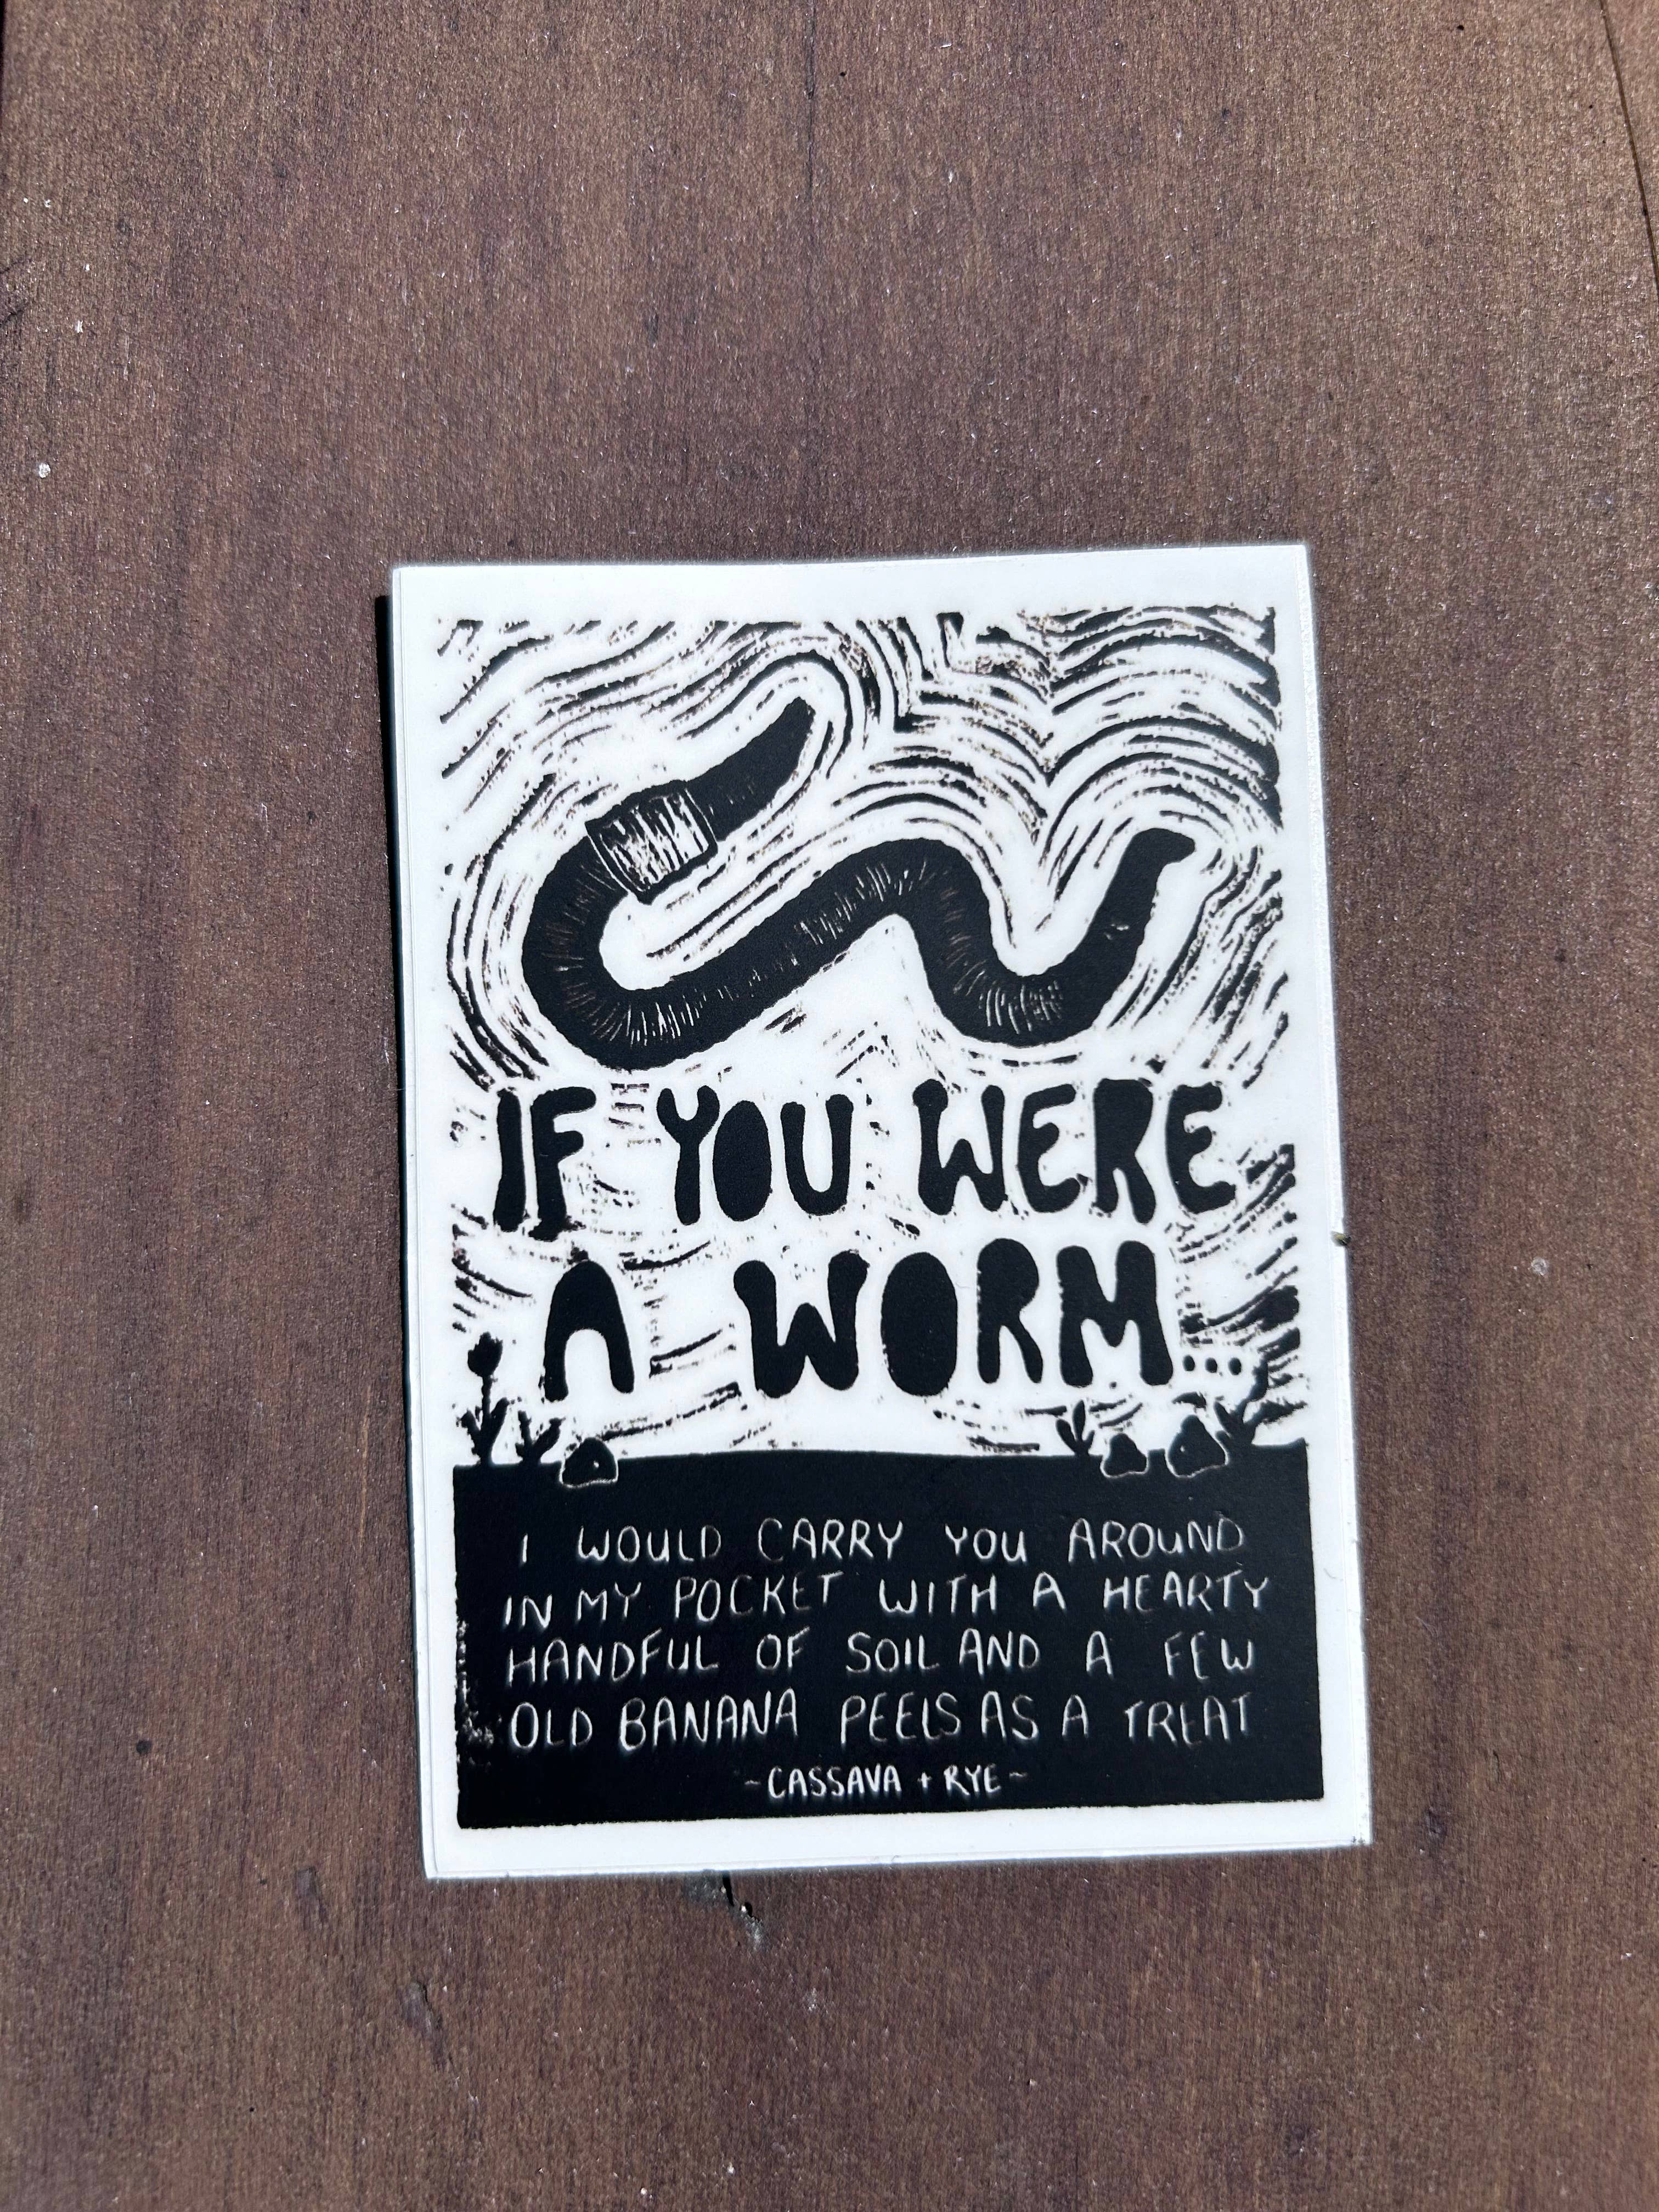 IF YOU WERE
A WORM...
I WOULD CARRY YOU AROUND
IN MY POCKET WITH A HEARTY
HANDFUL OF SOIL AND A FEW
OLD BANANA PEELS AS A TREAT
-CASSAVA + RYE-